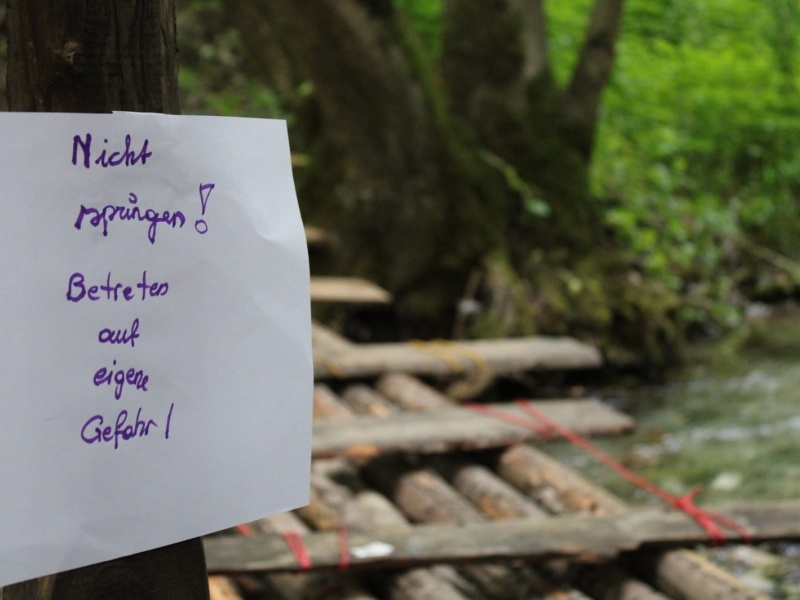 Nicht
springen!
Betreten
auf
eigene
Gefahr!